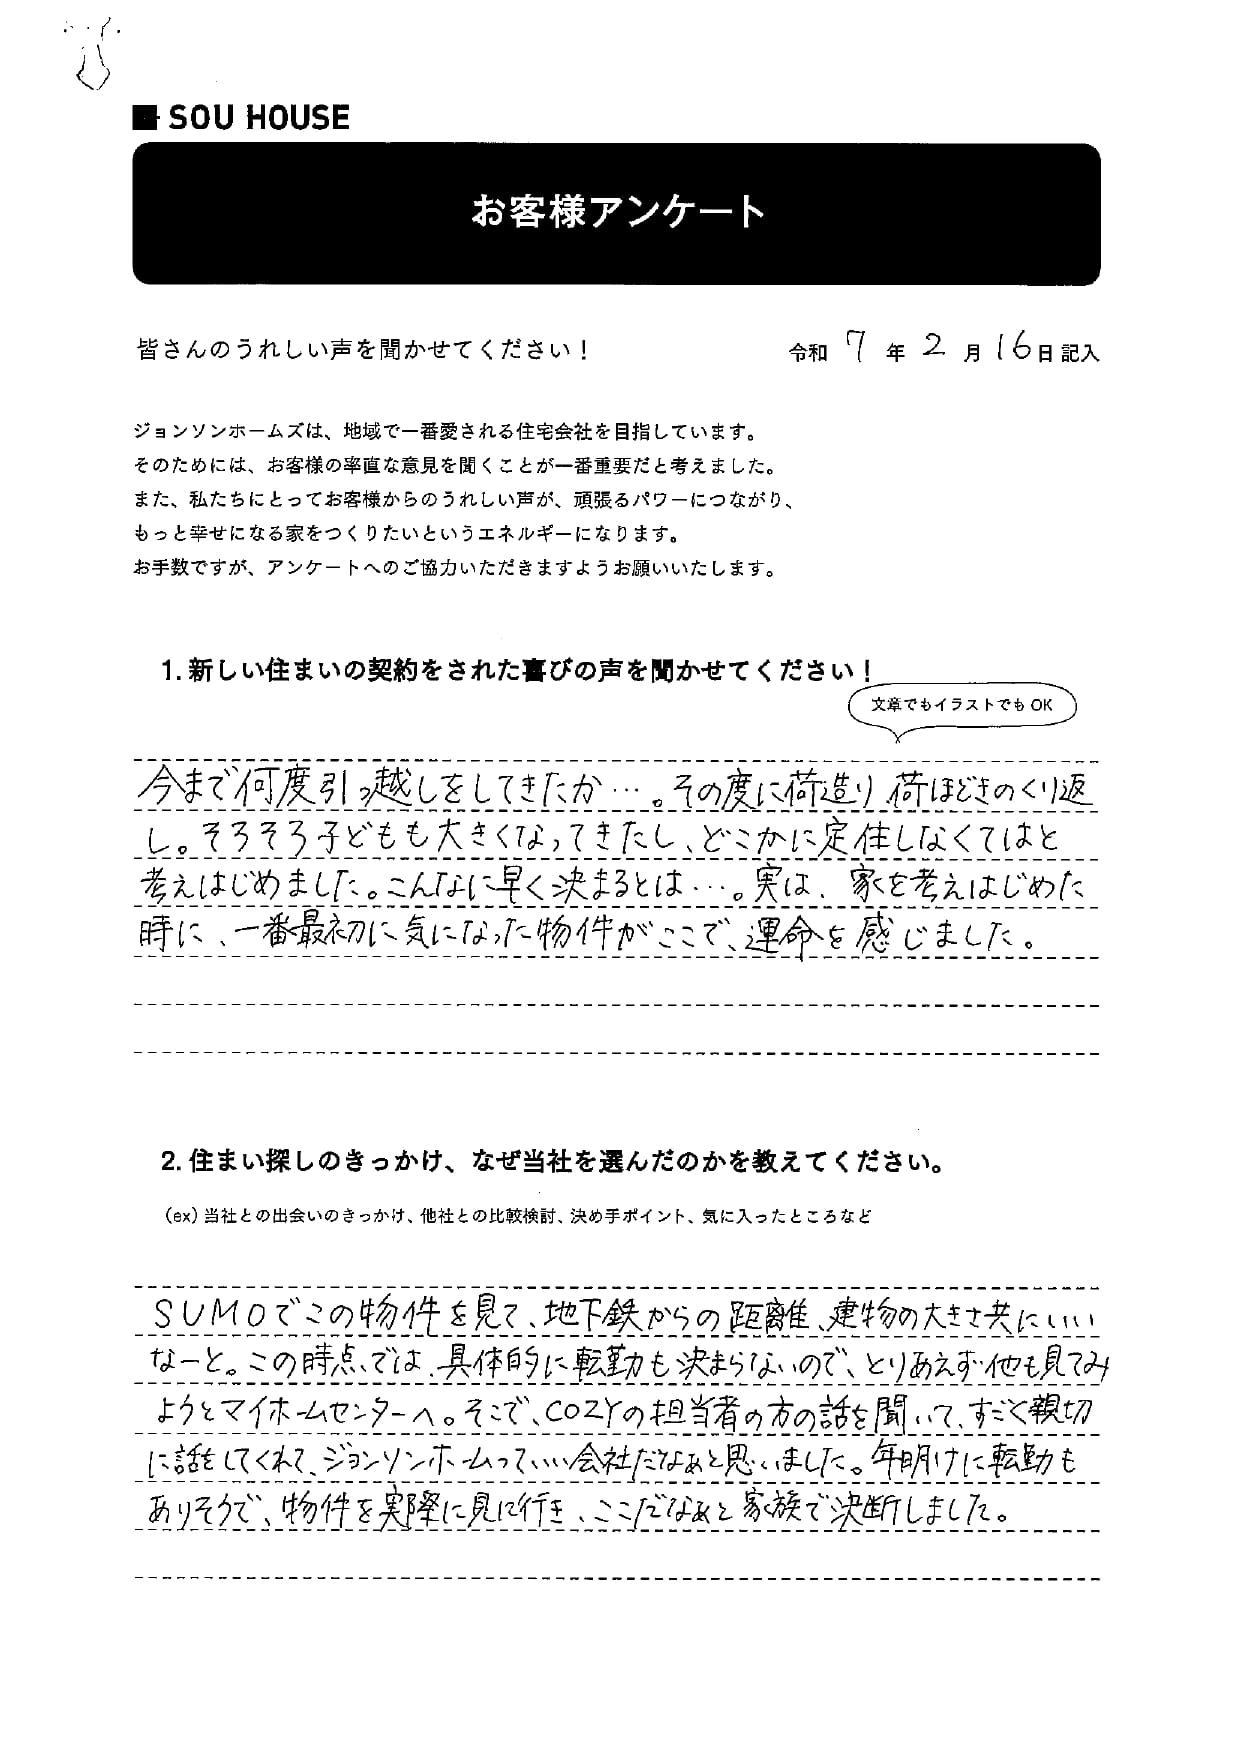 SOU HOUSE
お客様アンケート
皆さんのうれしい声を聞かせてください！
令和 7 年 2 月 16 日 記入
ジョンソンホームズは、地域で一番愛される住宅会社を目指しています。
そのためには、お客様の率直な意見を聞くことが一番重要だと考えました。
また、私たちにとってお客様からのうれしい声が、頑張るパワーにつながり、
もっと幸せになる家をつくりたいというエネルギーになります。
お手数ですが、アンケートへのご協力いただきますようお願いいたします。
1. 新しい住まいの契約をされた喜びの声を聞かせてください！
文章でもイラストでも OK
今まで何度引っ越しをしてきたか…。その度に荷造り荷ほどきのくり返
し。そろそろ子どもも大きくなってきたし、どこかに定住しなくてはと
考えはじめました。こんなに早く決まるとは…。実は、家を考えはじめた
時に、一番最初に気になった物件がここで、運命を感じました。
2. 住まい探しのきっかけ、なぜ当社を選んだのかを教えてください。
（ex）当社との出会いのきっかけ、他社との比較検討、決め手ポイント、気に入ったところなど
SUMOでこの物件を見て、地下鉄からの距離、建物の大きさ共にいい
なーと。この時点では、具体的に転勤も決まらないので、とりあえず他も見てみ
ようとマイホームセンターへ。そこで、COZYの担当者の方の話を聞いて、すごく親切
に話をしてくれて、ジョンソンホームっていい会社だなぁと思いました。年明けに転勤も
ありそうで、物件を実際に見に行き、ここだなぁと家族で決断しました。